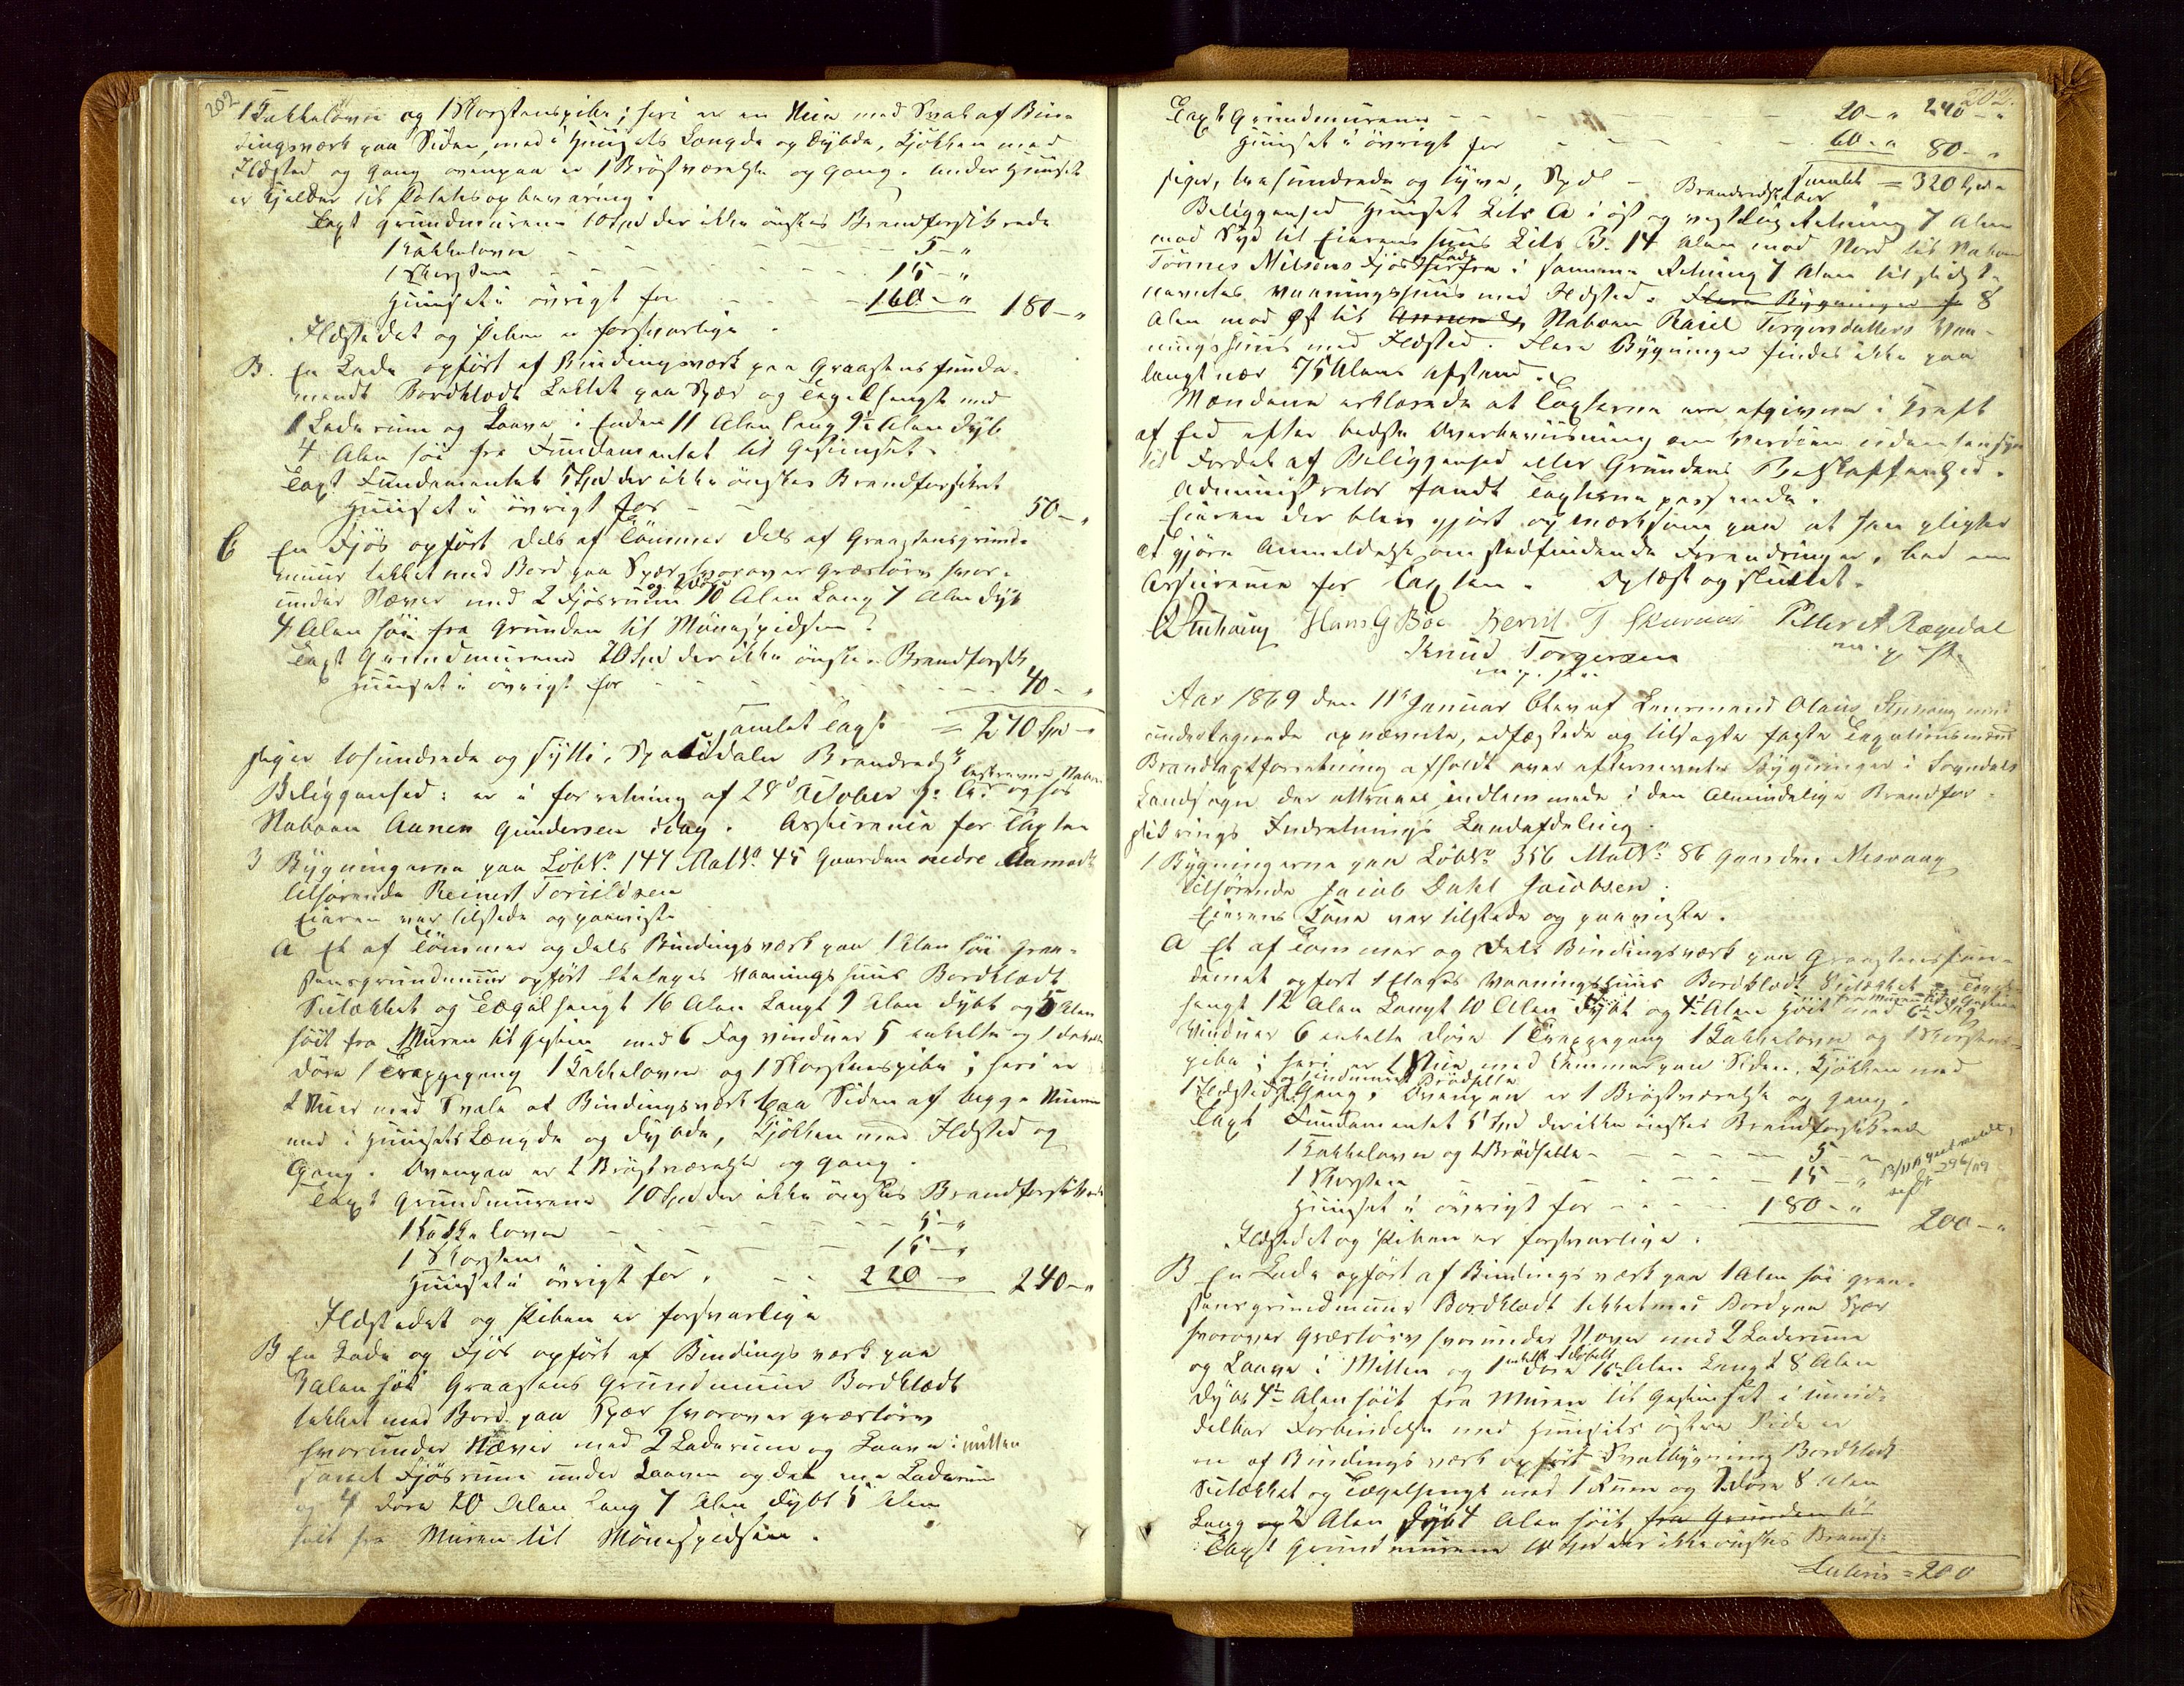 202
1 Kakkelovn og 1 Skorstenspibe; heri er en Stue med Sval af Bin-
dingsværk paa Siden, med i Huusets Længde og Dybde, Kjökken med
Ildsted og Gang ovenpaa er 1 Bröstværelse og Gang. under Huuset
er Kjelder til Potetesopbevaring.
Taxt Grundmurene 10 Spd der ikke önskes Brandforsikrede
1 Kakkelovn - - - 5 - "
1 Skorsten - - - 15 - "
Huuset i övrigt for - - - 160 - " 180 - "
Ildstedet og Piben er forsvarlige.
B. En Lade opfört af Bindingsværk paa Graastens funda-
ment Bordklædt Lektet paa Spær og Tegelhængt med
1 Laderum og Laave i Enden 11 Alen lang 9½ Alen dyb
4 Alen höi fra Fundamentet til Gesimset.
Taxt Fundamentet 5 Spd der ikke önskes Brandforsikret
Huuset i övrigt for - - - 50 - "
C En Fjös opfört dels af Tömmer dels af Graastensgrund-
muur tækket med Bord paa Spær hvorover Græstörv hvor-
under Næver med 2 Fjösrum 10 Alen Lang 7 Alen dyb
4 Alen höi fra Grunden til Mönespidsen.
Taxt Grundmurene 20 Spd der ikke önskes Brandforsik
Huuset i övrigt for - - - 40 - "
samlet Taxt = 270 Spd -
siger tohundrede og sytti, Speciedaler Brandredsk
Beliggenhed: er i forretning af 28d October
Naboen Aanen Gundersen idag. Assurance for Taxten
3 Bygningerne paa Löb No. 147 Mat No. 45 Gaarden nedre Aamodt
tilhörende Reinert Torieldsen
Eieren var tilstede og paaviste
A Et af Tömmer og dels Bindingsværk paa 1 Alen höi Graa-
stensgrundmuur opfört 1 Etages Vaaningshuus Bordklædt
Sutækket og Tegelhængt 16 Alen Langt 9 Alen dybt og 5 Alen
höit fra Muren til Gesims med 6 Fag vinduer 5 enkelte og 1 dobbelt
döre 1 Trappegang 1 Kakkelovn og 1 Skorstenspibe; heri er
2 Stuer med Svale af Bindingsværk paa Siden af begge Stuerne
med i Huusets Længde og dybde, Kjökken med Ildsted og
Gang. Ovenpaa er 2 Bröstværelse og Gang.
Taxt Grundmurene 10 Spd der ikke önskes Brandforsikrede
1 Kakkelovn - - - 5 - "
1 Skorsten - - - 15 - "
Huuset i övrigt for - - - 220 - " 240 - "
Ildstedet og Piben er forsvarlige
B En Lade og Fjös opfört af Bindingsværk paa
3 Alen höi Graastens Grundmuur Bordklædt
tækket med Bord paa Spær hvorover græstörv
hvorunder Næver med 2 Laderum og Laave i mitten
samt Fjösrum under Laaven og det ene Laderum
og 4 döre 20 Alen lang 7 Alen dybt 5 Alen
höit fra Muren til Mönespidsen.
202.
Taxt Grundmurene - - - 20 - " 240 - "
Huuset i övrigt for - - - 60 - " 80 - "
Samlet = 320 Spd
siger, trehundrede og tyve, Spd -
Beliggenhed Huuset Litr A i öst og vestlig Retning 7 Alen
mod Syd til Eierens huus Litr B. 14 Alen mod Nord til Naboen
Tönnes Nilsens Fjös herfra i samme Retning 7 Alen til sidst-
nævntes Vaaningshuus med Ildsted. Flere Bygninger f 8
Alen mod Öst til Naboen Rasiel Tergersdatters Vaa-
ningshuus med Ildsted. Flere Bygninger findes ikke paa
langt nær 75 Alens afstand.
Mændene erklærede at Taxterne ere afgivne i Kraft
af Eed efter bedste Overbeviisning om Værdien uden hensyn
til Fordel af Beliggenhed eller Grundens Beskaffenhed.
Administrator fandt Taxterne passende.
Eieren der blev gjort opmærksom paa at han pligter
at gjöre Anmeldelse om stedfindende Forandringer, bad om
Assurance for Taxten. Oplæst og sluttet.
OStuhaug Hans G Böe Bernt T Skaraas Peder A Rægedal
m. p. P.
Knud Torgersen
m. p. P.
Aar 1869 den 11te Januar blev af Lensmand Olaus Stuhaug med
undertegnede opnævnte, edfæstede og tilsagte faste Taxationsmænd
Brandtaxtforretning afholdt over efternævnte Bygninger i Sogndals
Landsogn der attraaes indlemmede i den Almindelige Brandfor-
sikrings Indretnings Landafdeling.
1 Bygningerne paa Löb No 356 Mat No. 86 Gaarden Mesvaag
tilhörende Jacob Dahl Jacobsen.
Eierens Kone var tilstede og paaviste.
A Et af Tømmer og dels Bindingsværk paa Graastensfun-
dament opfört 1 Etages Vaaningshuus Bordklædt Sutækket og Tegel-
hængt 12 Alen Langt 10 Alen Dybt og 4½ Alen höit med 6 Fag
Vinduer 6 enkelte döre 1 Trappegang 1 Kakkelovn og 1 Skorstens-
pibe; heri er 1 Stue med Kammer paa Siden, Kjökken med
og indmuret Brödhelle
1 Ildsted Gang, Ovenpaa er 1 Bröstværelse og gang.
Taxt Fundamentet 5 Spd der ikke önskes Brandforsikrede
1 Kakkelovn og 1 Brödhelle - - - 5 - "
1 Skorsten - - - 15 - "
Huuset i övrigt for - - - 180 - " 200 - "
Ildstedet og Piben er forsvarlige.
B En Lade opfört af Bindingsværk paa 1 Alen höi graa-
stensgrundmuur Bordklædt tækket med Bord paa Spær
hvorover Græstörv hvorunder Næver med 2 Laderum
og Laave i Mitten og 1 enkelt 1 dobbelt döre 16 Alen Langt 8 Alen
dybt 4½ Alen höit fra Muren til Gesimset i umid-
delbar Forbindelse med Huusets östre Side er
en af Bindingsværk opfört Svalbygning Bordklædt
Sutækket og Tegelhængt med 1 Rum og 1 döre 8 Alen
Lang og 2 Alen dybt 4 Alen höit fra Grunden til
Taxt Grundmurene 10 Spd der ikke önskes Brandf:
Lateris = 200